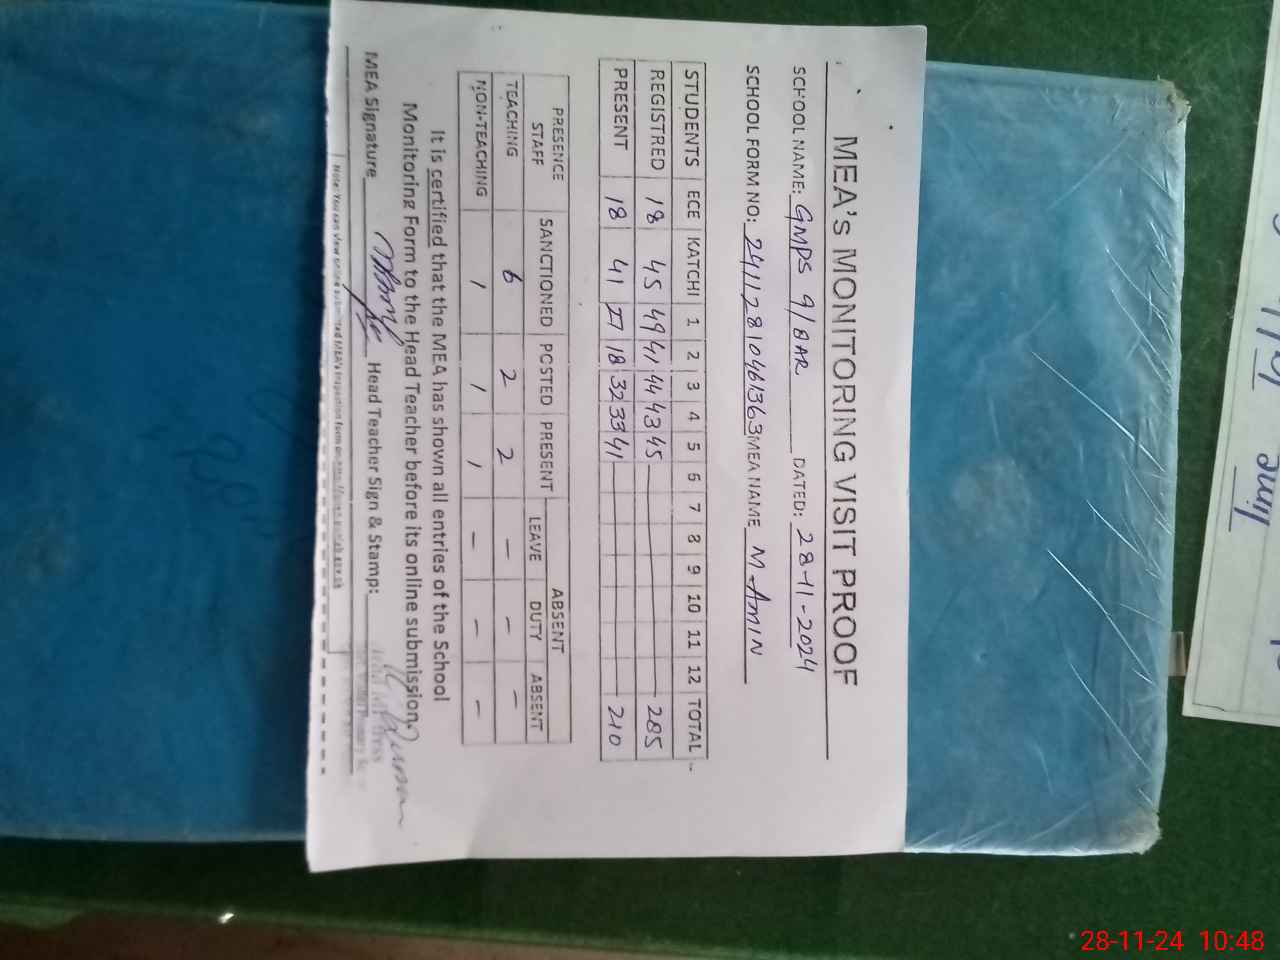 MEA's MONITORING VISIT PROOF
SCHOOL NAME: GMPS 9/8AR DATED: 28-11-2024
SCHOOL FORM NO: 24112810461363 MEA NAME M. AMIN
STUDENTS ECE KATCHI 1 2 3 4 5 6 7 8 9 10 11 12 TOTAL
REGISTRED 18 45 49 41 44 43 45 285
PRESENT 18 41 27 18 32 33 41 210
PRESENCE ABSENT
STAFF SANCTIONED POSTED PRESENT LEAVE DUTY ABSENT
TEACHING 6 2 2 - - -
NON-TEACHING 1 1 1 - - -
It is certified that the MEA has shown all entries of the School
Monitoring Form to the Head Teacher before its online submission.
MEA Signature Head Teacher Sign & Stamp:
Note: You can view online submitted MEA's inspection form on
28-11-24 10:48